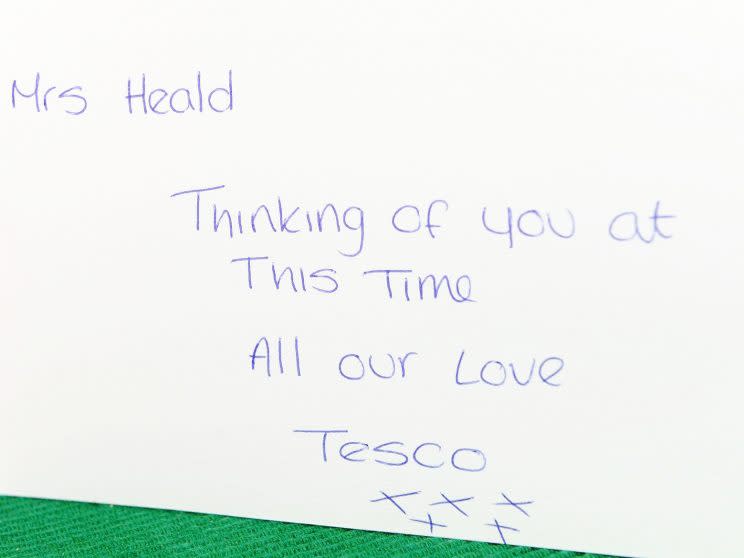 Mrs Heald
Thinking of you at
This Time
All our Love
Tesco
x x x
x x